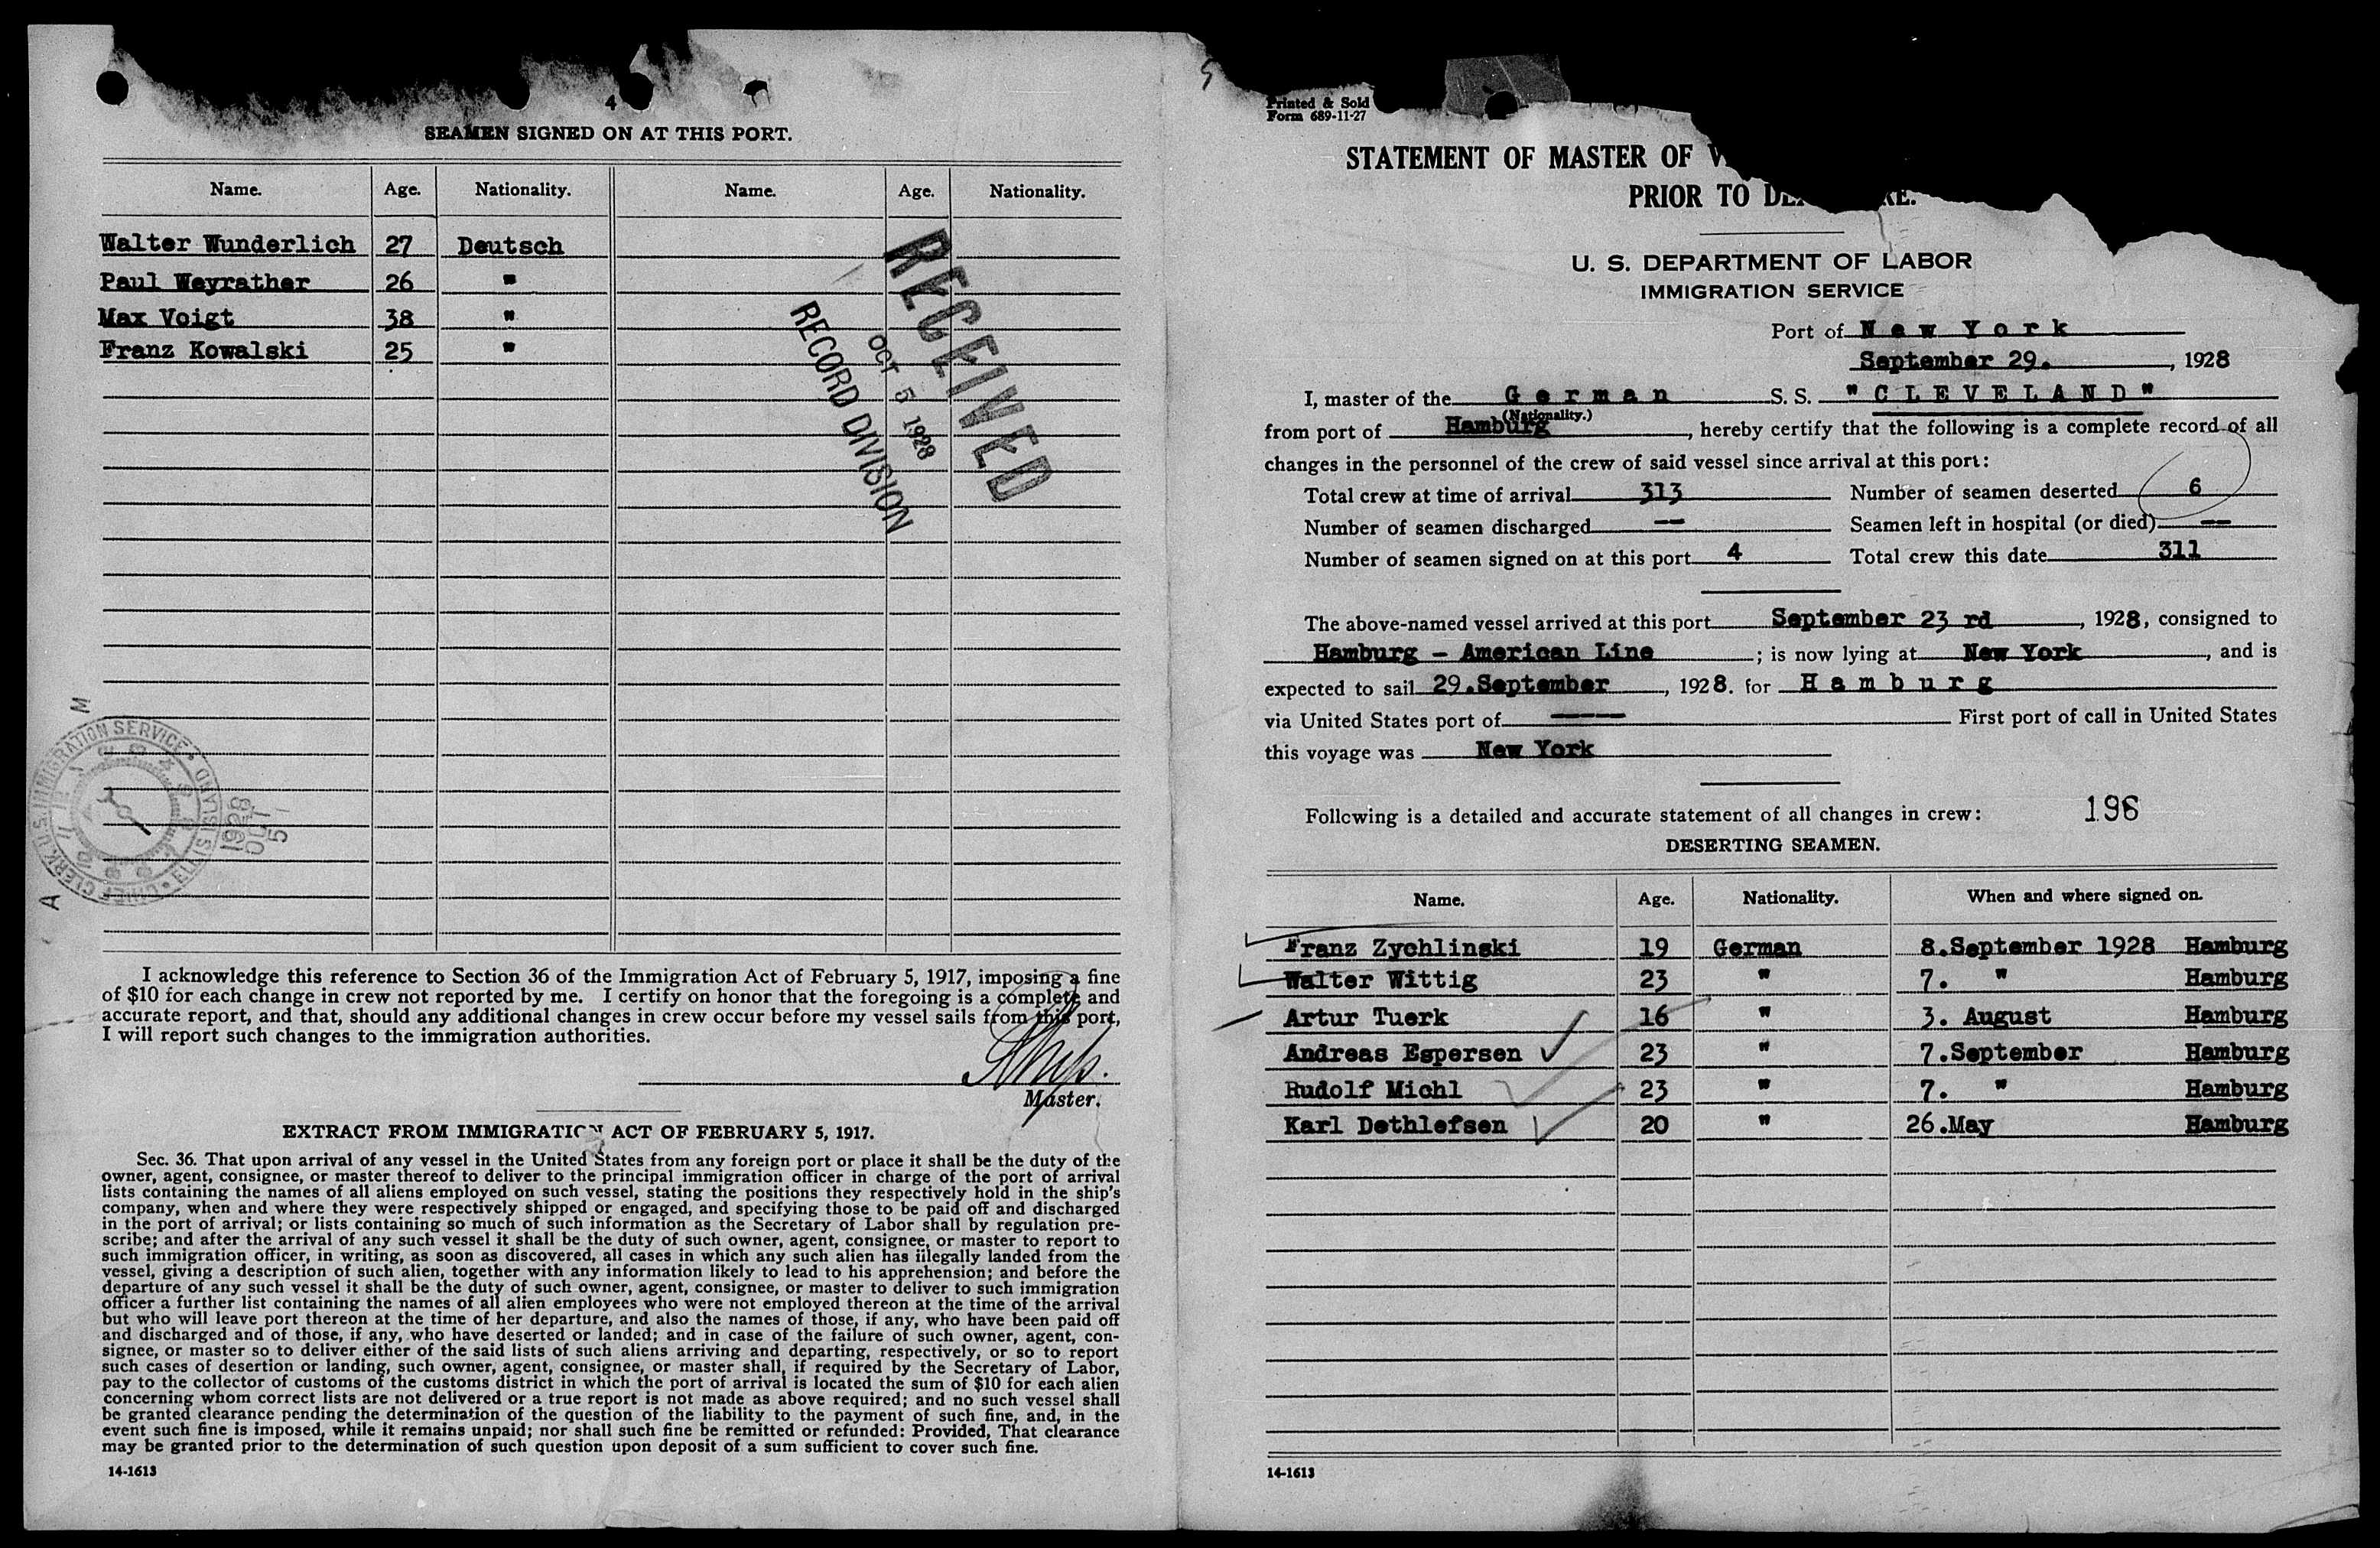 4
SEAMEN SIGNED ON AT THIS PORT.
Name. Age. Nationality. Name. Age. Nationality.
Walter Wunderlich 27 Deutsch
Paul Weyrather 26 "
Max Voigt 38 "
Franz Kowalski 25 "
RECEIVED
OCT 5 1928
RECORD DIVISION
M
CHIEF CLERK U.S. IMMIGRATION SERVICE, ELLIS ISLAND
1928
OCT
5
A
I acknowledge this reference to Section 36 of the Immigration Act of February 5, 1917, imposing a fine
of $10 for each change in crew not reported by me. I certify on honor that the foregoing is a complete and
accurate report, and that, should any additional changes in crew occur before my vessel sails from this port,
I will report such changes to the immigration authorities.
Master.
EXTRACT FROM IMMIGRATION ACT OF FEBRUARY 5, 1917.
Sec. 36. That upon arrival of any vessel in the United States from any foreign port or place it shall be the duty of the
owner, agent, consignee, or master thereof to deliver to the principal immigration officer in charge of the port of arrival
lists containing the names of all aliens employed on such vessel, stating the positions they respectively hold in the ship's
company, when and where they were respectively shipped or engaged, and specifying those to be paid off and discharged
in the port of arrival; or lists containing so much of such information as the Secretary of Labor shall by regulation pre-
scribe; and after the arrival of any such vessel it shall be the duty of such owner, agent, consignee, or master to report to
such immigration officer, in writing, as soon as discovered, all cases in which any such alien has illegally landed from the
vessel, giving a description of such alien, together with any information likely to lead to his apprehension; and before the
departure of any such vessel it shall be the duty of such owner, agent, consignee, or master to deliver to such immigration
officer a further list containing the names of all alien employees who were not employed thereon at the time of the arrival
but who will leave port thereon at the time of her departure, and also the names of those, if any, who have been paid off
and discharged and of those, if any, who have deserted or landed; and in case of the failure of such owner, agent, con-
signee, or master so to deliver either of the said lists of such aliens arriving and departing, respectively, or so to report
such cases of desertion or landing, such owner, agent, consignee, or master shall, if required by the Secretary of Labor,
pay to the collector of customs of the customs district in which the port of arrival is located the sum of $10 for each alien
concerning whom correct lists are not delivered or a true report is not made as above required; and no such vessel shall
be granted clearance pending the determination of the question of the liability to the payment of such fine, and, in the
event such fine is imposed, while it remains unpaid; nor shall such fine be remitted or refunded: Provided, That clearance
may be granted prior to the determination of such question upon deposit of a sum sufficient to cover such fine.
14-1613
Printed & Sold
Form 689-11-27
STATEMENT OF MASTER OF V
PRIOR TO DE RE.
U. S. DEPARTMENT OF LABOR
IMMIGRATION SERVICE
Port of New York
September 29. , 1928
I, master of the German S. S. "CLEVELAND"
(Nationality.)
from port of Hamburg, hereby certify that the following is a complete record of all
changes in the personnel of the crew of said vessel since arrival at this port:
Total crew at time of arrival 313 Number of seamen deserted 6
Number of seamen discharged -- Seamen left in hospital (or died) --
Number of seamen signed on at this port 4 Total crew this date 311
The above-named vessel arrived at this port September 23 rd, 1928, consigned to
Hamburg - American Line; is now lying at New York, and is
expected to sail 29.September, 1928. for Hamburg
via United States port of ---- First port of call in United States
this voyage was New York
Following is a detailed and accurate statement of all changes in crew: 196
DESERTING SEAMEN.
Name. Age. Nationality. When and where signed on.
Franz Zychlinski 19 German 8.September 1928 Hamburg
Walter Wittig 23 " 7. " Hamburg
Artur Tuerk 16 " 3. August Hamburg
Andreas Espersen 23 " 7.September Hamburg
Rudolf Michl 23 " 7. " Hamburg
Karl Dethlefsen 20 " 26.May Hamburg
14-1613